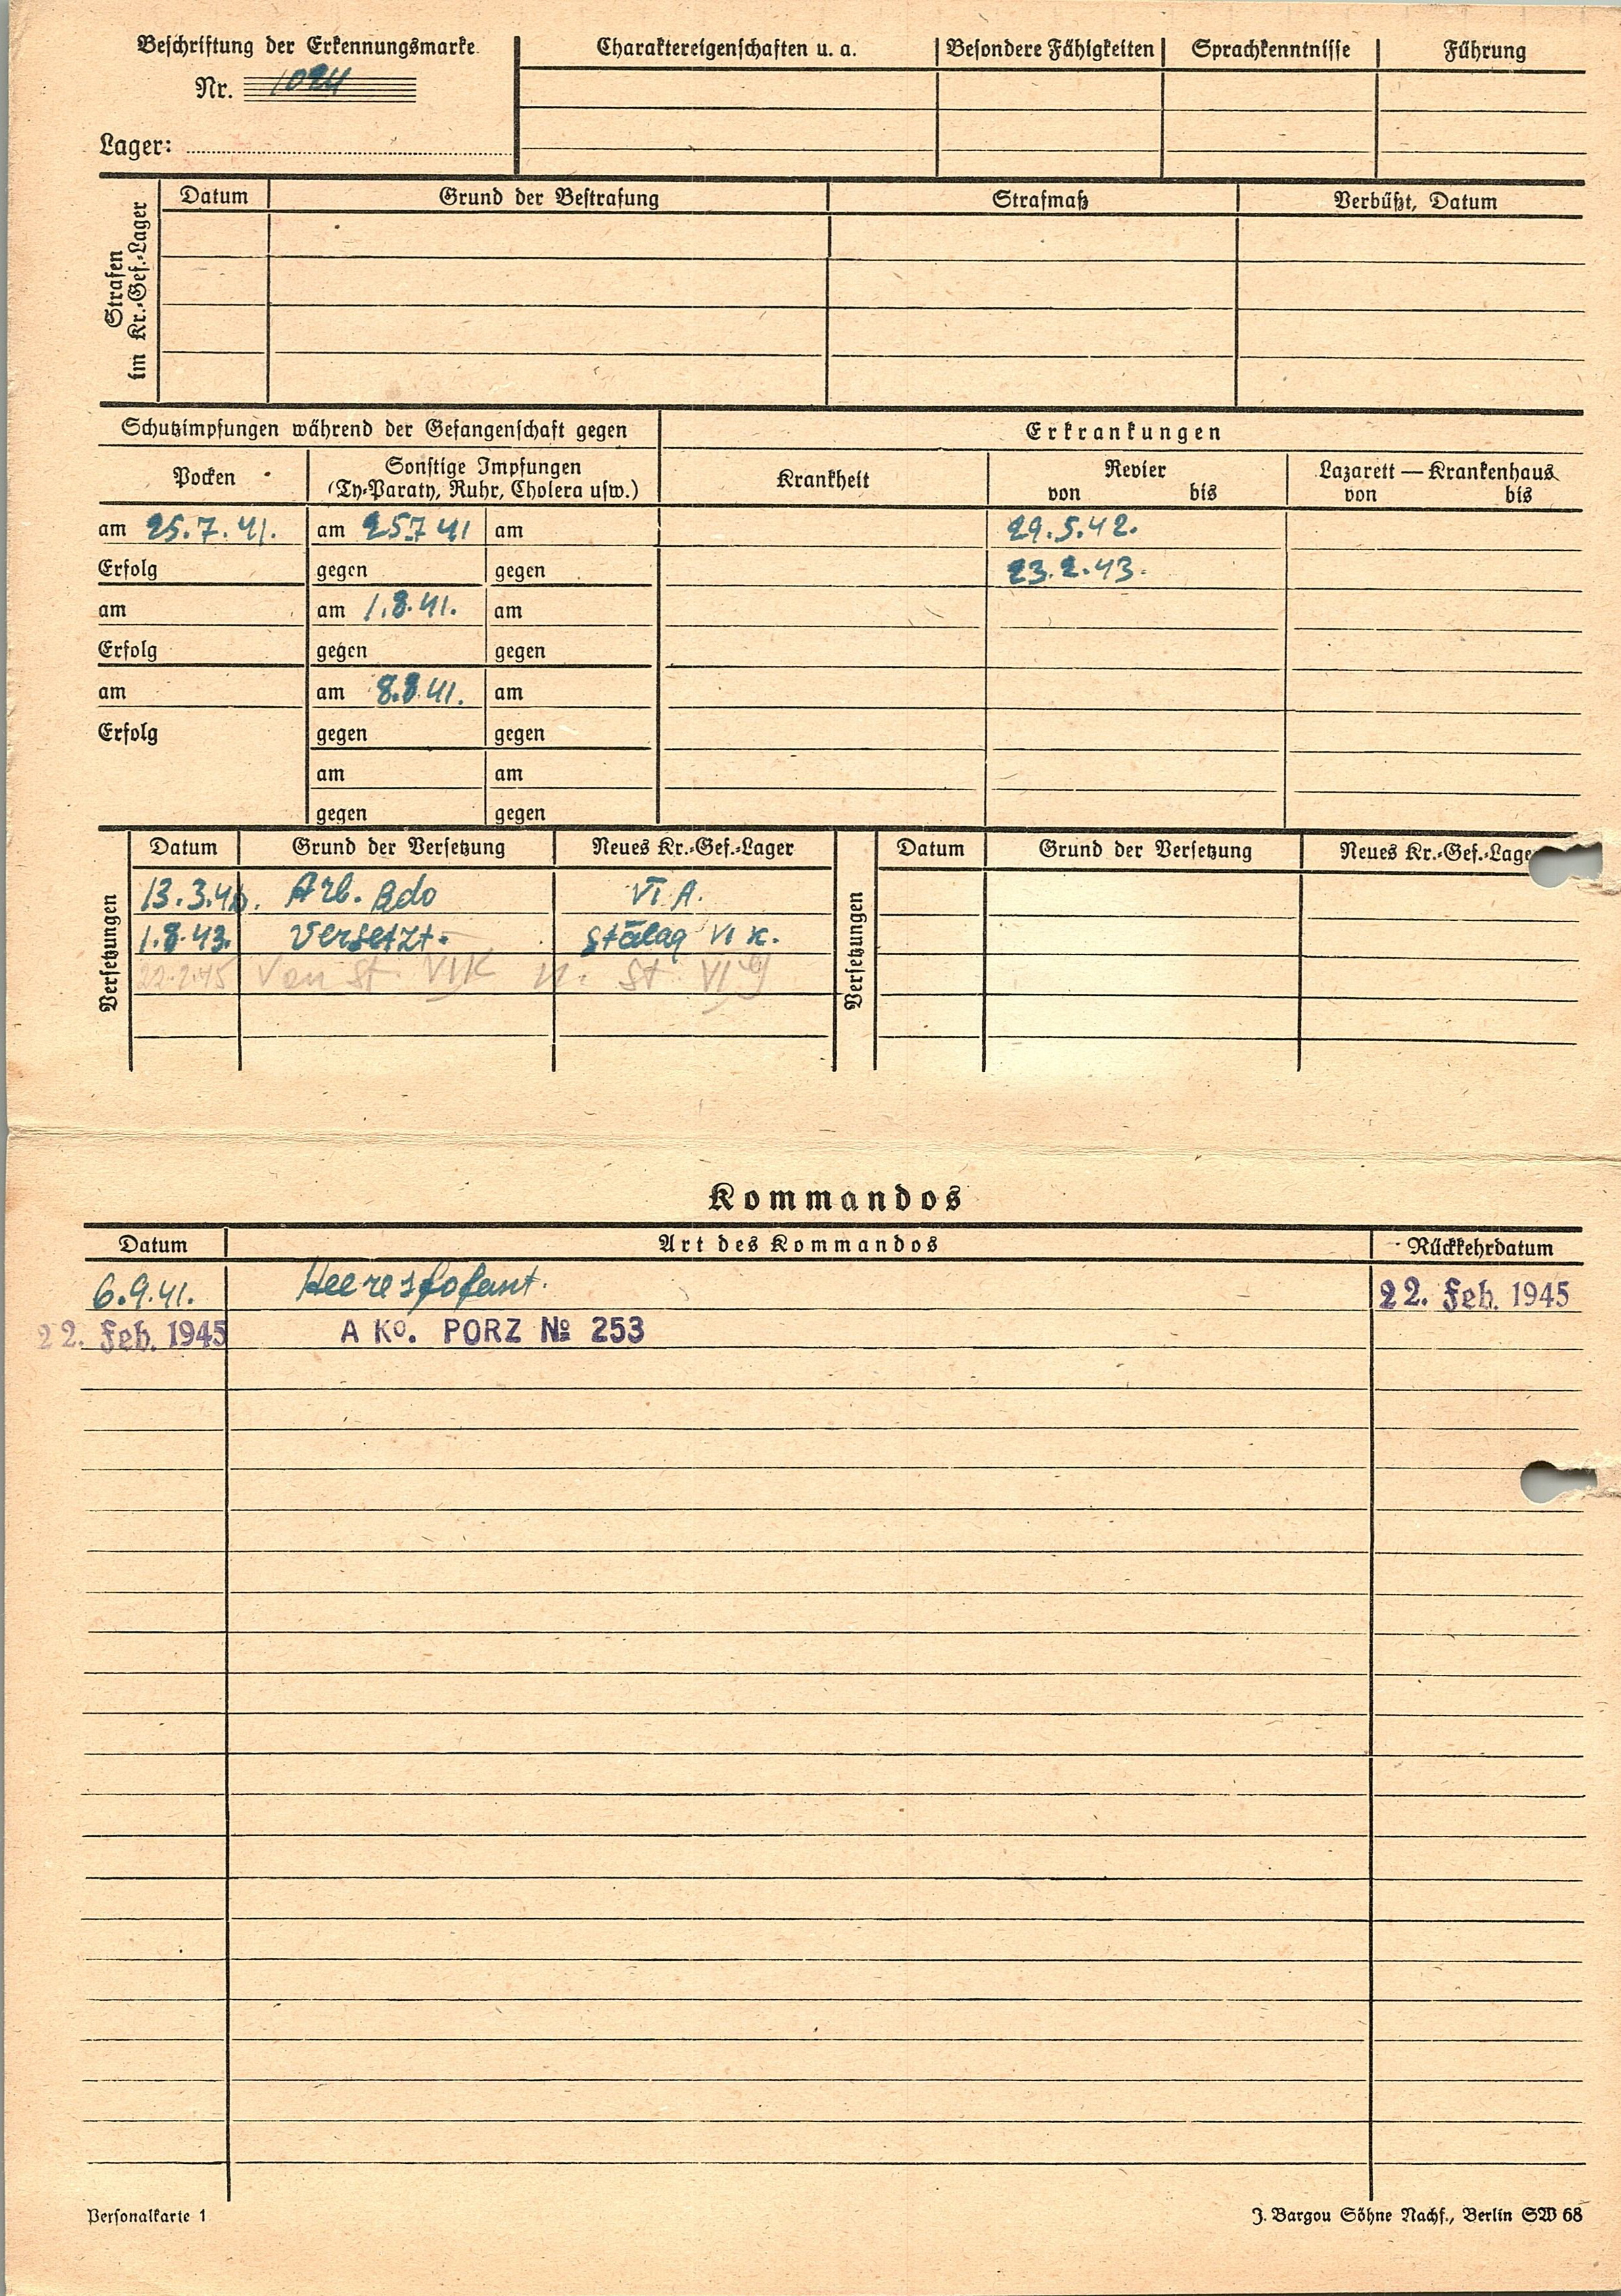 Beschriftung der Erkennungsmarke
Nr. 1024
Lager:
Charaktereigenschaften u. a. Besondere Fähigkeiten Sprachkenntnisse Führung
Strafen im Kr.-Gef.-Lager
Datum Grund der Bestrafung Strafmaß Verbüßt, Datum
Schutzimpfungen während der Gefangenschaft gegen Erkrankungen
Pocken Sonstige Impfungen Krankheit Revier Lazarett — Krankenhaus
(Ty-Paraty, Ruhr, Cholera usw.) von bis von bis
am 25.7.41. am 25.7 41 am 29.5.42.
Erfolg gegen gegen 23.2.43.
am am 1.8.41. am
Erfolg gegen gegen
am am 8.8.41. am
Erfolg gegen gegen
am am
gegen gegen
Versetzungen
Datum Grund der Versetzung Neues Kr.-Gef.-Lager
13.3.4 Arb. Kdo VI A.
1.8.43. Versetzt. Stalag VI K.
22.2.45 Von St. VIK n. St VI G
Versetzungen
Datum Grund der Versetzung Neues Kr.-Gef.-Lage
Kommandos
Datum Art des Kommandos Rückkehrdatum
6.9.41. 22. Feb. 1945
22. Feb. 1945 A Ko. PORZ № 253
Personalkarte 1 J. Bargou Söhne Nachf., Berlin SW 68